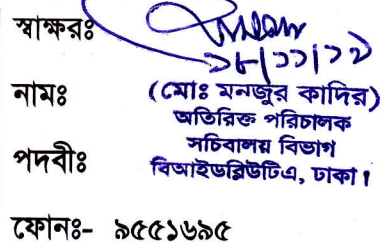 স্বাক্ষরঃ
১৮/১১/১২
নামঃ (মোঃ মনজুর কাদির)
অতিরিক্ত পরিচালক
পদবীঃ সচিবালয় বিভাগ
বিআইডব্লিউটিএ, ঢাকা।
ফোনঃ- ৯৫৫১৬৯৫